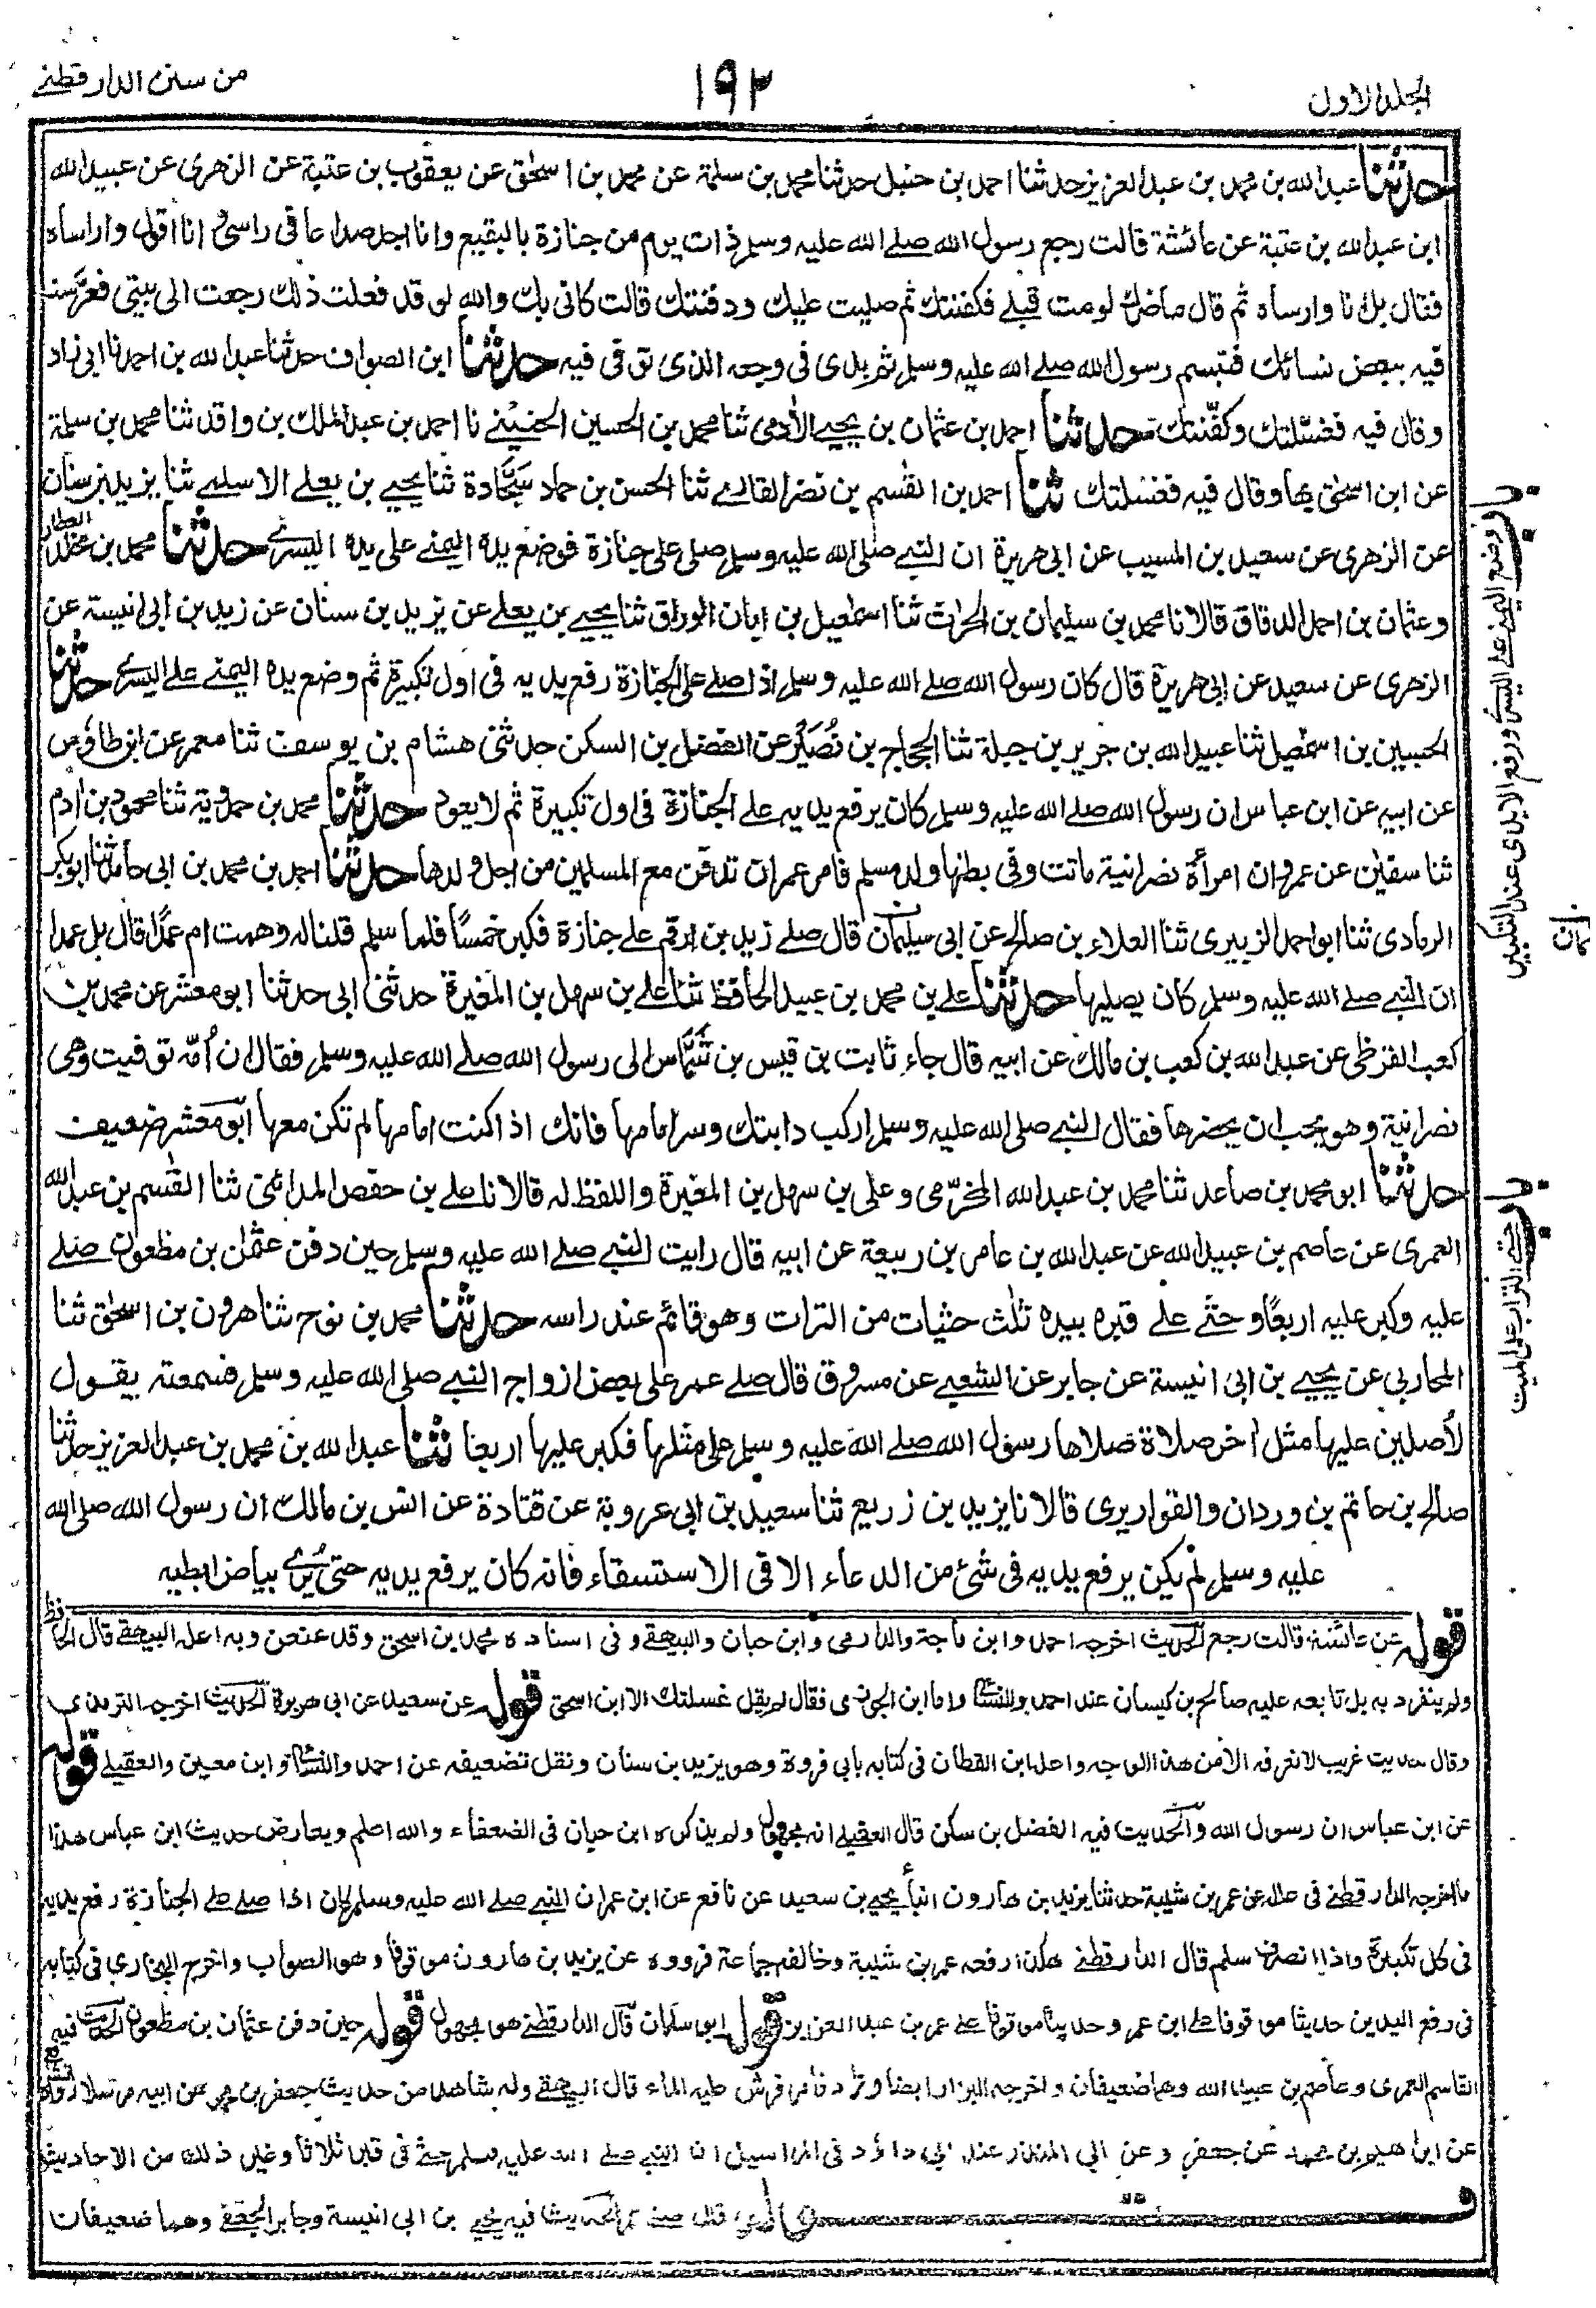 المجلد الاول
١٩٢
من سنن الدارقطنے
حدثنا عبد الله بن محمد بن عبد العزيز حدثنا احمد بن حنبل حدثنا محمد بن سلمة عن محمد بن اسحٰق عن يعقوب بن عتبة عن الزهرى عن عبيد الله
ابن عبد الله بن عتبة عن عائشة قالت رجع رسول الله صلے الله عليه وسلم ذات يوم من جنازة بالبقيع وانا اجد صداعا فى راسى وانا اقول واراساه
فقال بل انا وارساه ثم قال ماضرك لومت قبلے فكفنتك ثم صليت عليك ودفنتك قالت كانى بك والله لو قد فعلت ذلك رجعت الى بيتى فعرست
فيه ببعض نسائك فتبسم رسول الله صلے الله عليه وسلم ثم بدى فى وجعه الذى توفى فيه حدثنا ابن الصواف حدثنا عبد الله بن احمد نا ابى زاد
وقال فيه فغسّلتك وكفّنتك حدثنا احمد بن عثمان بن يحيے الأدمى ثنا محمد بن الحسين الحنينے نا احمد بن عبد الملك بن واقد ثنا محمد بن سلمة
عن ابن اسحٰق بها وقال فيه فغسلتك ثنا احمد بن القٰسم بن نصر القارے ثنا الحسن بن حماد سجّادة ثنا يحيے بن يعلے الاسلمے ثنا يزيد بن سنان
عن الزهرى عن سعيد بن المسيب عن ابى هريرة ان النبے صلى الله عليه وسلم صلى على جنازة فوضع يده اليمنے على يده اليسرے حدثنا محمد بن مخلد العطار
وعثمان بن احمد الدقاق قالا نا محمد بن سليمان بن الحٰرث ثنا اسمٰعيل بن ابان الوراق ثنا يحيے بن يعلے عن يزيد بن سنان عن زيد بن ابى انيسة عن
الزهرى عن سعيد عن ابى هريرة قال كان رسول الله صلے الله عليه وسلم اذا صلے على الجنازة رفع يديه فى اول تكبيرة ثم وضع يده اليمنے علے اليسرے حدثنا
الحسين بن اسمٰعيل ثنا عبيد الله بن جرير بن جبلة ثنا الحجاج بن نُصَيْر عن الفضل بن السكن حدثنى هشام بن يوسف ثنا معمر عن ابن طاؤس
عن ابيه عن ابن عباس ان رسول الله صلے الله عليه وسلم كان يرفع يديه علے الجنازة فى اول تكبيرة ثم لا يعود حدثنا محمد بن حمدوية ثنا محمود بن أدم
ثنا سفيٰن عن عمرو ان امرأة نصرانية ماتت وفى بطنها ولد مسلم فامر عمر ان تدفن مع المسلمين من اجل ولدها حدثنا احمد بن محمد بن ابى حامد ثنا ابوبكر
الرمادى ثنا ابو احمد الزبيرى ثنا العلاء بن صالح عن ابى سليمان قال صلے زيد بن ارقم علے جنازة فكبر خمسًا فلما سلم قلنا له وهمت ام عمدًا قال بل عمدا
ان النبے صلے الله عليه وسلم كان يصليها حدثنا علے بن محمد بن عبيد الحافظ ثنا علے بن سهل بن المغيرة حدثنى ابى حدثنا ابو معشر عن محمد بن
كعب القرظى عن عبد الله بن كعب بن مالك عن ابيه قال جاء ثابت بن قيس بن شَمّاس الى رسول الله صلے الله عليه وسلم فقال ان أُمّه توفيت وهى
نصرانية وهو يحب ان يحضرها فقال النبے صلى الله عليه وسلم اركب دابتك وسر امامها فانك اذا كنت امامها لم تكن معها ابو معشر ضعيف
حدثنا ابو محمد بن صاعد ثنا محمد بن عبد الله المخرّمى وعلى بن سهل بن المغيرة واللفظ له قالا نا علے بن حفص المدائنى ثنا القٰسم بن عبد الله
العمرى عن عاصم بن عبيد الله عن عبد الله بن عامر بن ربيعة عن ابيه قال رايت النبے صلے الله عليه وسلم حين دفن عثمٰن بن مظعون صلے
عليه وكبر عليه اربعًا وحثَے علے قبره بيده ثلٰث حثيات من التراب وهو قائم عند راسه حدثنا محمد بن نوح ثنا هرون بن اسحٰق ثنا
المحاربى عن يحيے بن ابى انيسة عن جابر عن الشعبے عن مسروق قال صلے عمر على بعض ازواج النبے صلى الله عليه وسلم فسمعته يقول
لأصلين عليها مثل اخر صلاة صلاها رسول الله صلے الله عليه وسلم على مثلها فكبر عليها اربعا ثنا عبد الله بن محمد بن عبد العزيز حدثنا
صالح بن حاتم بن وردان والقواريرى قالا نا يزيد بن زريع ثنا سعيد بن ابى عروبة عن قتادة عن انس بن مالك ان رسول الله صلى الله
عليه وسلم لم يكن يرفع يديه فى شئ من الدعاء الا فى الاستسقاء فانه كان يرفع يديه حتى يُرے بياض ابطيه
باب وضع اليمنے علے اليسرے ورفع الايدى عند التكبير
باب حثے التراب على الميت
قوله عن عائشة قالت رجع الحديث اخرجه احمد وابن ماجة والدارمى وابن حبان والبيهقے وفى اسناده محمد بن اسحٰق وقد عنعن وبه اعله البيهقے قال الحافظ
ولم ينفرد به بل تابعه عليه صالح بن كيسان عند احمد والنسائے واما ابن الجوزى فقال لم يقل غسلتك الا ابن اسحٰق قوله عن سعيد عن ابى هريرة الحديث اخرجه الترمذى
وقال حديث غريب لا نعرفه الا من هذا الوجه واعله ابن القطان فى كتابه بابى فروة وهو يزيد بن سنان ونقل تضعيفه عن احمد والنسائے وابن معين والعقيلے قوله
عن ابن عباس ان رسول الله والحديث فيه الفضل بن سكن قال العقيلے انه مجهول ولم يذكره ابن حبان فى الضعفاء والله اعلم ويعارض حديث ابن عباس هذا
ما اخرجه الدارقطنے فى علله عن عمر بن شيبة حدثنا يزيد بن هارون انبأ يحيے بن سعيد عن نافع عن ابن عمر ان النبے صلے الله عليه وسلم كان اذا صلے علے الجنازة رفع يديه
فى كل تكبيرة واذا انصرف سلم قال الدارقطنے هكذا رفعه عمر بن شيبة وخالفه جماعة فرووه عن يزيد بن هارون موقوفا وهو الصواب واخرج البخارى فى كتابه
فى رفع اليدين حديثا موقوفا على ابن عمر وحديثا موقوفا علے عمر بن عبد العزيز قوله ابو سلمان قال الدارقطنے هو مجهول قوله حين دفن عثمان بن مظعون الحديث فيه
القاسم العمرى وعاصم بن عبيد الله وهما ضعيفان واخرجه البزار ايضا وزاد فامر فرش عليه الماء قال البيهقے وله شاهد من حديث جعفر بن محمد عن ابيه مرسلا رواه الشافعى
عن ابراهيم بن محمد عن جعفر وعن ابي المنذر عند ابى داؤد فى المراسيل ان النبے صلے الله عليه وسلم حثے فى قبر ثلاثا وغير ذلك من الاحاديث
قال صلے عمر الحديث فيه يحيے بن ابى انيسة وجابر الجعفے وهما ضعيفان